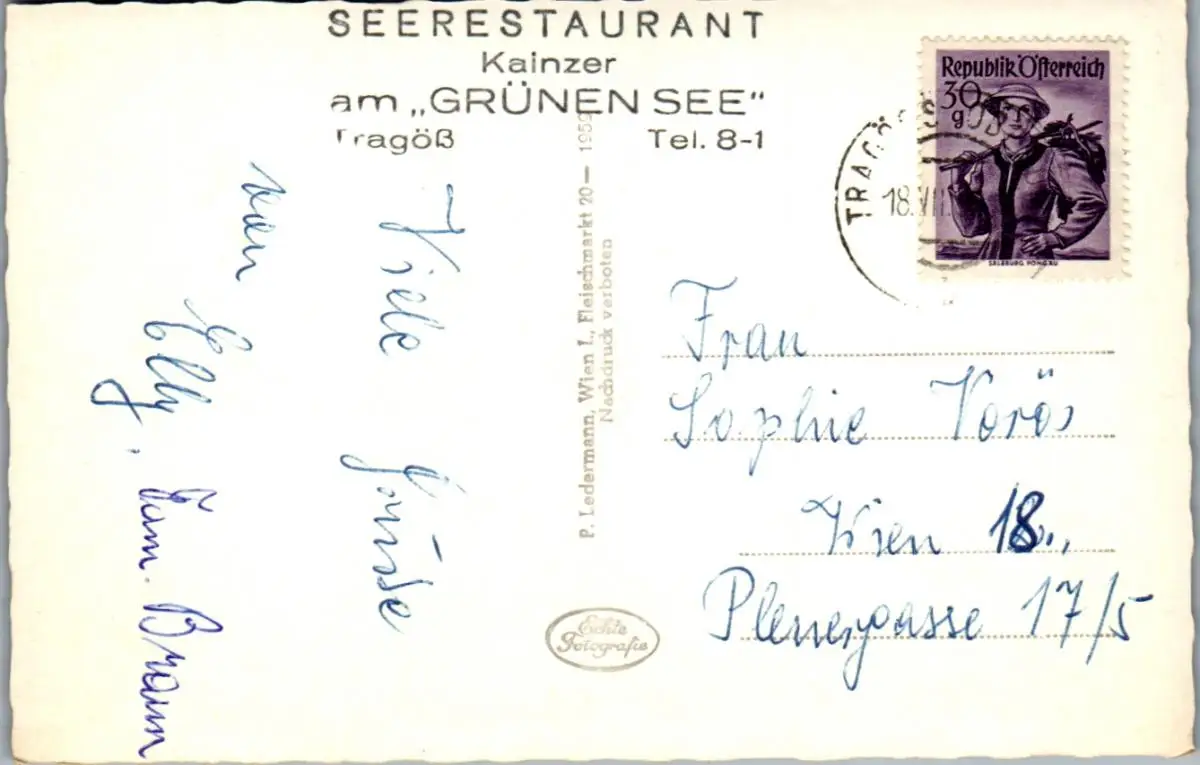 SEERESTAURANT
Kainzer
am „GRÜNEN SEE"
Tragöß Tel. 8-1
Republik Österreich
30 g
SALZBURG, PONGAU
18.VIII
Viele Grüsse
von Elly,
Fam. Braun
P. Ledermann, Wien I., Fleischmarkt 20 — 1959
Nachdruck verboten
Echte
Fotografie
Frau
Sophie Vörös
Wien 18.,
17/5